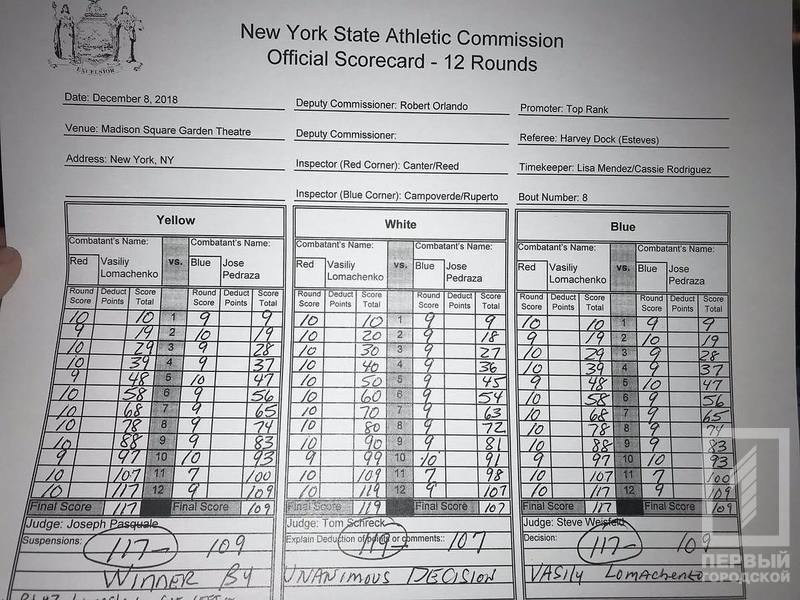 EXCELSIOR
New York State Athletic Commission
Official Scorecard - 12 Rounds
Date: December 8, 2018 Deputy Commissioner: Robert Orlando Promoter: Top Rank
Venue: Madison Square Garden Theatre Deputy Commissioner: Referee: Harvey Dock (Esteves)
Address: New York, NY Inspector (Red Corner): Canter/Reed Timekeeper: Lisa Mendez/Cassie Rodriguez
Inspector (Blue Corner): Campoverde/Ruperto Bout Number: 8
Yellow White Blue
Combatant's Name: Combatant's Name: Combatant's Name: Combatant's Name: Combatant's Name: Combatant's Name:
Red Vasiliy Lomachenko vs. Blue Jose Pedraza Red Vasiliy Lomachenko vs. Blue Jose Pedraza Red Vasiliy Lomachenko vs. Blue Jose Pedraza
Round Score Deduct Points Score Total Round Score Deduct Points Score Total Round Score Deduct Points Score Total Round Score Deduct Points Score Total Round Score Deduct Points Score Total Round Score Deduct Points Score Total
10 10 1 9 9 10 10 1 9 9 10 10 1 9 9
9 19 2 10 19 10 20 2 9 18 9 19 2 10 19
10 29 3 9 28 10 30 3 9 27 10 29 3 9 28
10 39 4 9 37 10 40 4 9 36 10 39 4 9 37
9 48 5 10 47 10 50 5 9 45 9 48 5 10 47
10 58 6 9 56 10 60 6 9 54 10 58 6 9 56
10 68 7 9 65 10 70 7 9 63 10 68 7 9 65
10 78 8 9 74 10 80 8 9 72 10 78 8 9 74
10 88 9 9 83 10 90 9 9 81 10 88 9 9 83
9 97 10 10 93 9 99 10 10 91 9 97 10 10 93
10 107 11 7 100 10 109 11 7 98 10 107 11 7 100
10 117 12 9 109 10 119 12 9 107 10 117 12 9 109
Final Score 117 Final Score 109 Final Score 119 Final Score 107 Final Score 117 Final Score 109
Judge: Joseph Pasquale Judge: Tom Schreck Judge: Steve Weisfeld
Suspensions: 117- 109 Explain Deduction of points or comments:: 119- 107 Decision: 117- 109
WINNER BY UNANIMOUS DECISION VASILY LOMACHENKO
ПЕРВЫЙ
ГОРОДСКОЙ